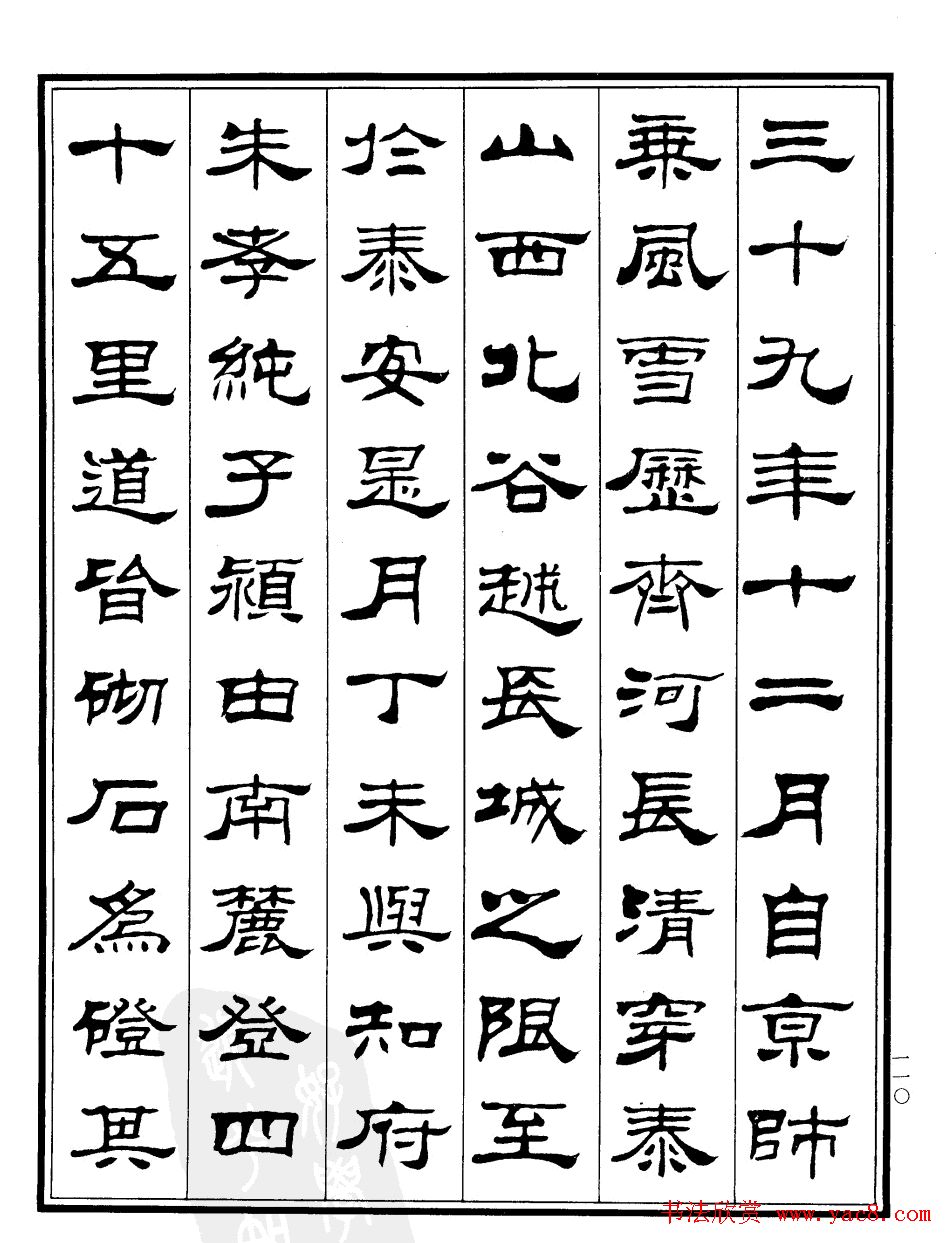 三十九年十二月自京師
乗風雪歷齊河長清穿泰
山西北谷越長城之限至
於泰安是月丁未與知府
朱孝純子潁由南麓登四
十五里道皆砌石為磴其
二一〇
书法欣赏 www.yac8.com